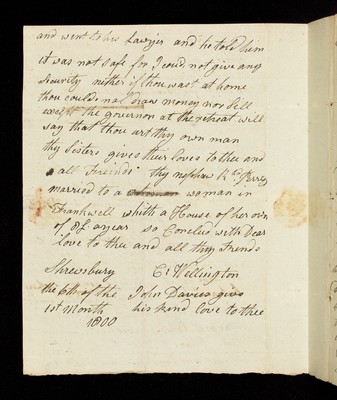 and went to his Lawyer and he told him
it was not safe for I coud not give any
Security nether if thou wast at home
thou could not draw money nor Sell
except the guvernor at the retreat will
say that thou art thy own man
thy Sisters gives their loves to thee and
all Freinds thy nephew Rto
married to a woman in
Frankwell whith a House of her own
of 8£ a year so Conclud with Dear
love to thee and all thy Frends
Shrewsbury C: Wellington
the 6th of the John Davies give
1st Month his kind love to thee
1800